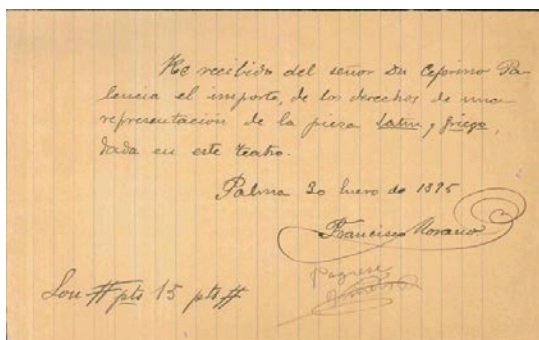 He recibido del señor Dn Ceferino Pa-
lencia el importe, de los derechos de una
representación de la pieza Latin y Griego,
dada en este teatro.
Palma 30 Enero de 1895
Francisco Morano
Páguese
Son # pts 15 pts #